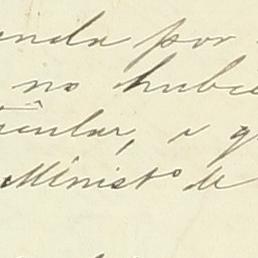 enda por
no hubie
ticular, e q
Minist° de